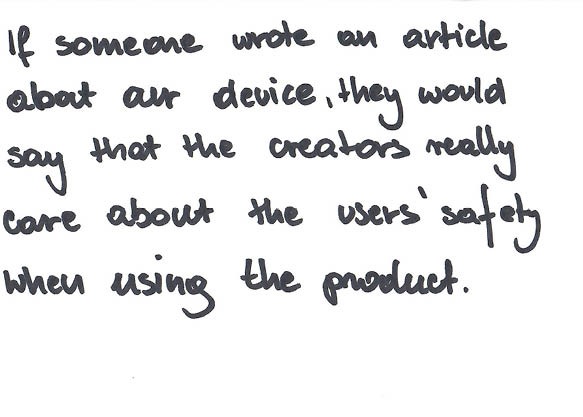 If someone wrote an article
about our device, they would
say that the creators really
care about the users' safety
when using the product.